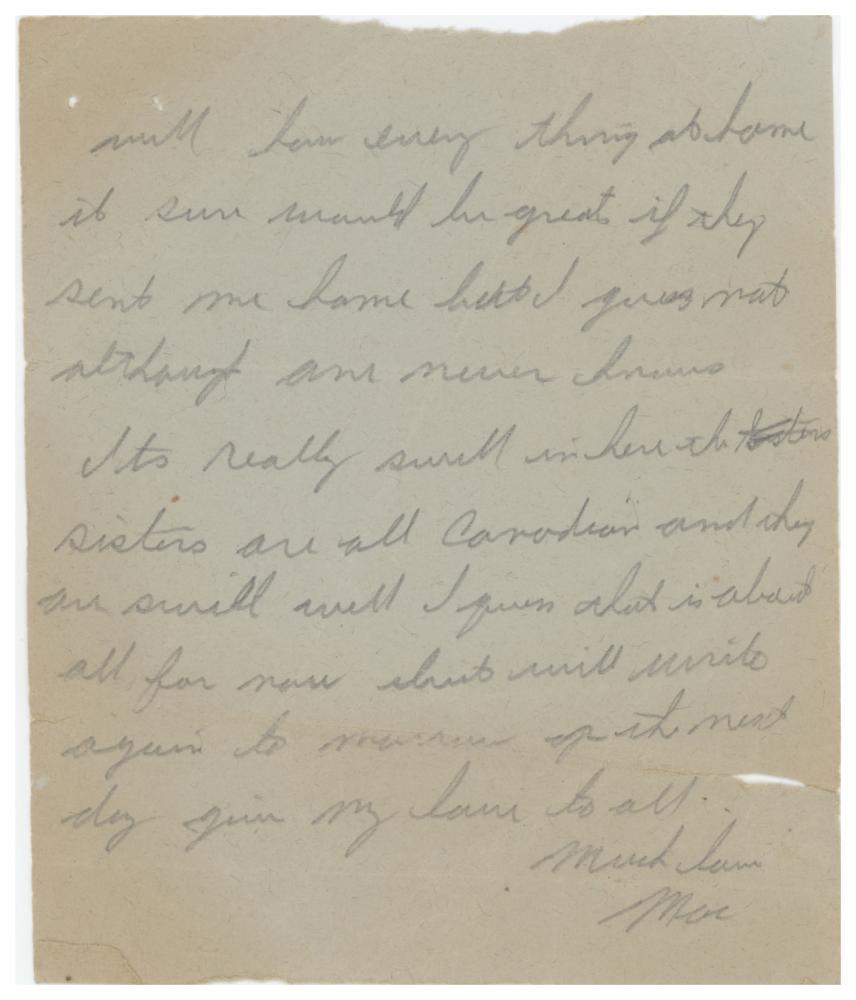 well how every thing at home
it sure would be great if they
sent me home but I guess not
although one never knows
Its really swell in here the
sisters are all Canadian and they
are swell well I guess that is about
all for now but will write
again to morrow or the next
day give my love to all.
Much love
Mac